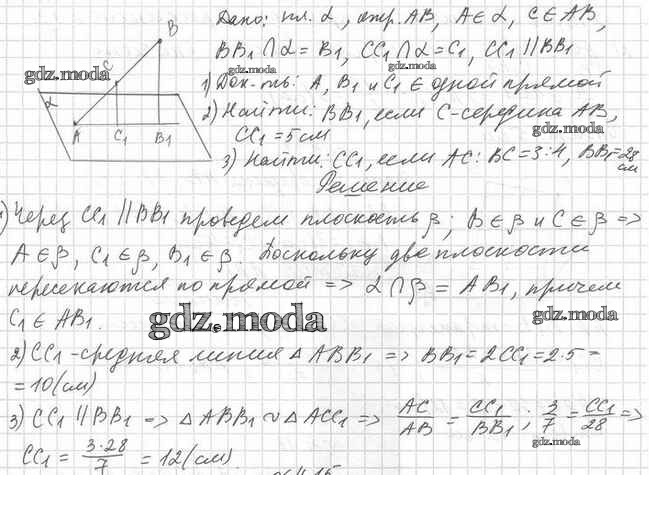 Дано: пл. α, отр. AB, A∈α, C∈AB,
BB₁∩α=B₁, CC₁∩α=C₁, CC₁∥BB₁
gdz.moda
1) Док-ть: A, B₁ и C₁ ∈ одной прямой
2) Найти: BB₁, если C-середина AB,
CC₁=5см
gdz.moda
3) Найти: CC₁, если AC:BC=3:4, BB₁=28 см
B
C
α
A
C₁
B₁
gdz.moda
Решение
1) Через CC₁∥BB₁ проведем плоскость β; B∈β и C∈β =>
A∈β, C₁∈β, B₁∈β. Поскольку две плоскости
пересекаются по прямой => α∩β = AB₁, причем
C₁∈AB₁.
gdz.moda
gdz.moda
2) CC₁-средняя линия △ABB₁ => BB₁=2CC₁=2·5=
=10(см)
3) CC₁∥BB₁ => △ABB₁ ~ △ACC₁ => AC/AB = CC₁/BB₁; 3/7 = CC₁/28 =>
gdz.moda
CC₁ = 3·28/7 = 12(см).